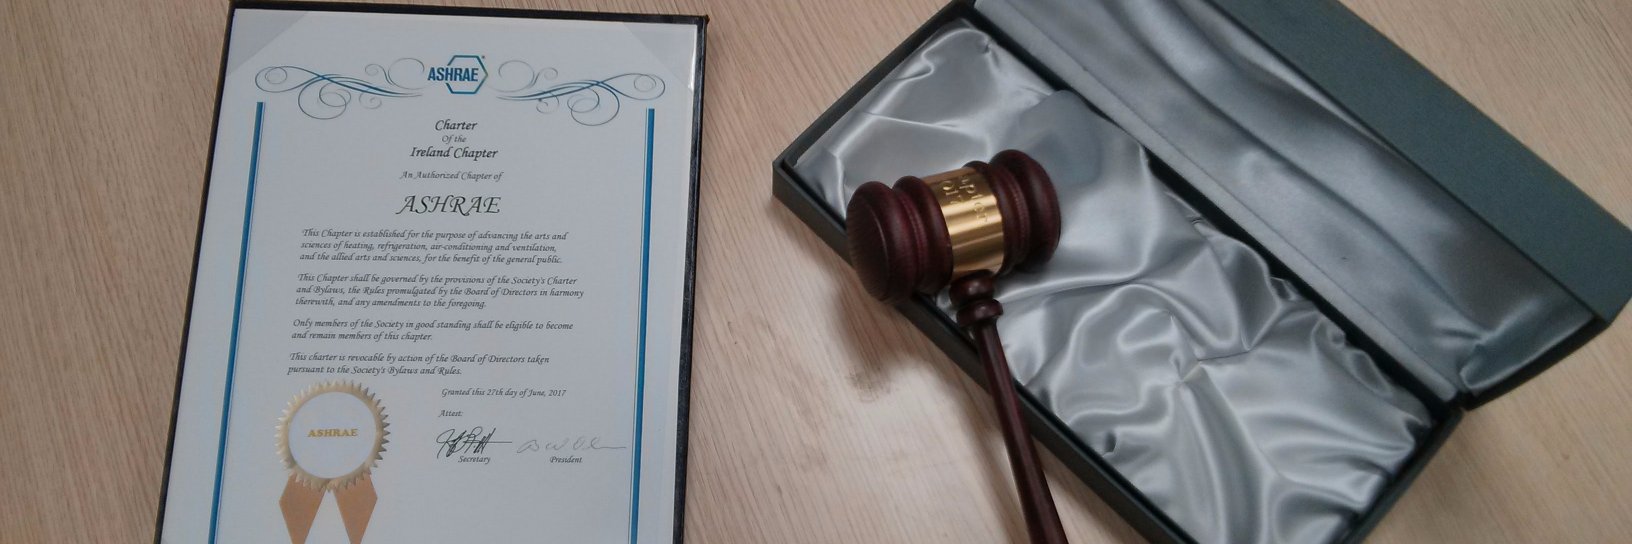 ASHRAE
Charter
Of the
Ireland Chapter
An Authorized Chapter of
ASHRAE
This Chapter is established for the purpose of advancing the arts and
sciences of heating, refrigeration, air-conditioning and ventilation,
and the allied arts and sciences, for the benefit of the general public.
This Chapter shall be governed by the provisions of the Society's Charter
and Bylaws, the Rules promulgated by the Board of Directors in harmony
therewith, and any amendments to the foregoing.
Only members of the Society in good standing shall be eligible to become
and remain members of this chapter.
This charter is revocable by action of the Board of Directors taken
pursuant to the Society's Bylaws and Rules.
Granted this 27th day of June, 2017
Attest:
Secretary
President
ASHRAE